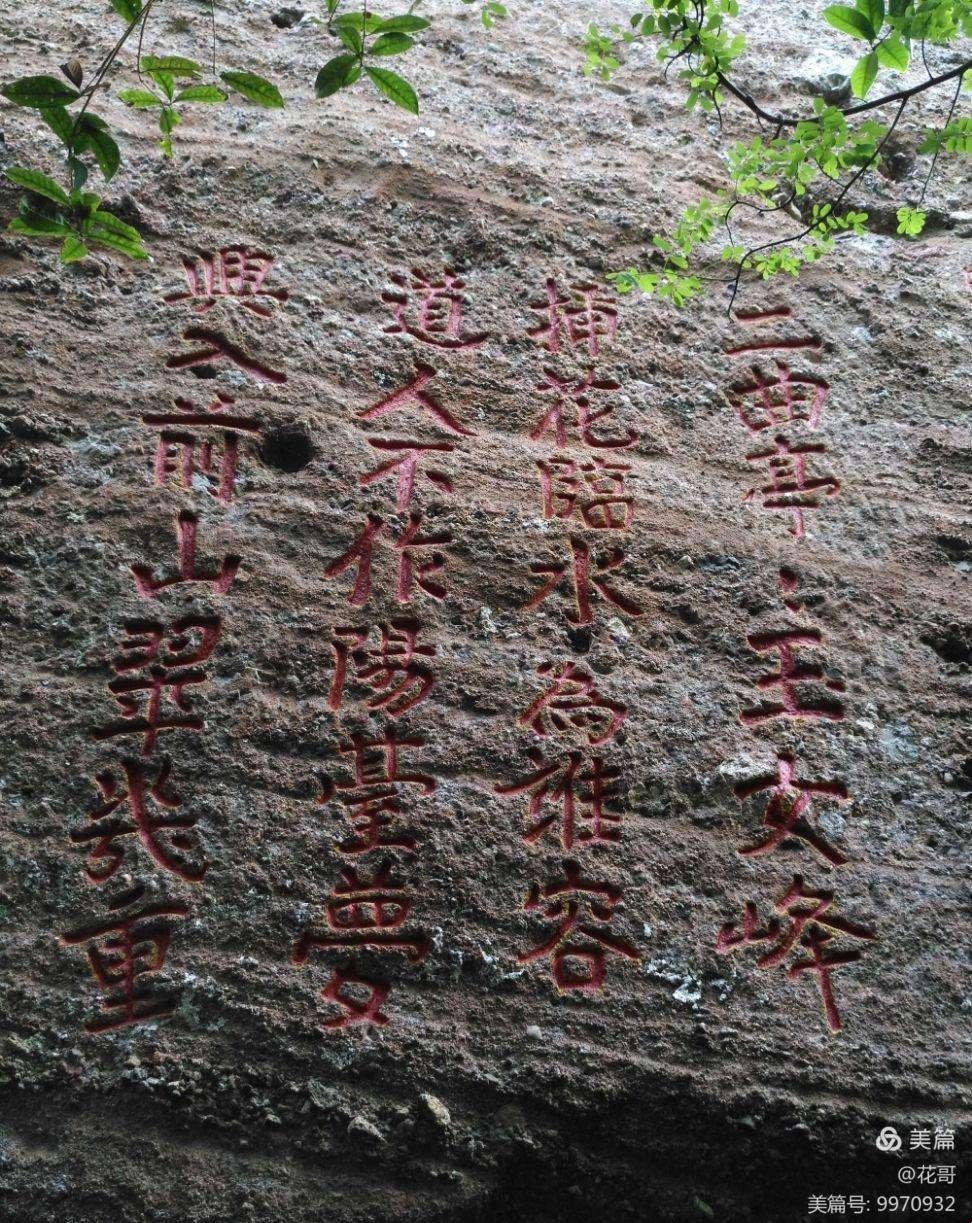 二曲亭〻玉女峰
插花臨水為誰容
道人不作陽臺夢
興入前山翠幾重
美篇
@花哥
美篇号: 9970932